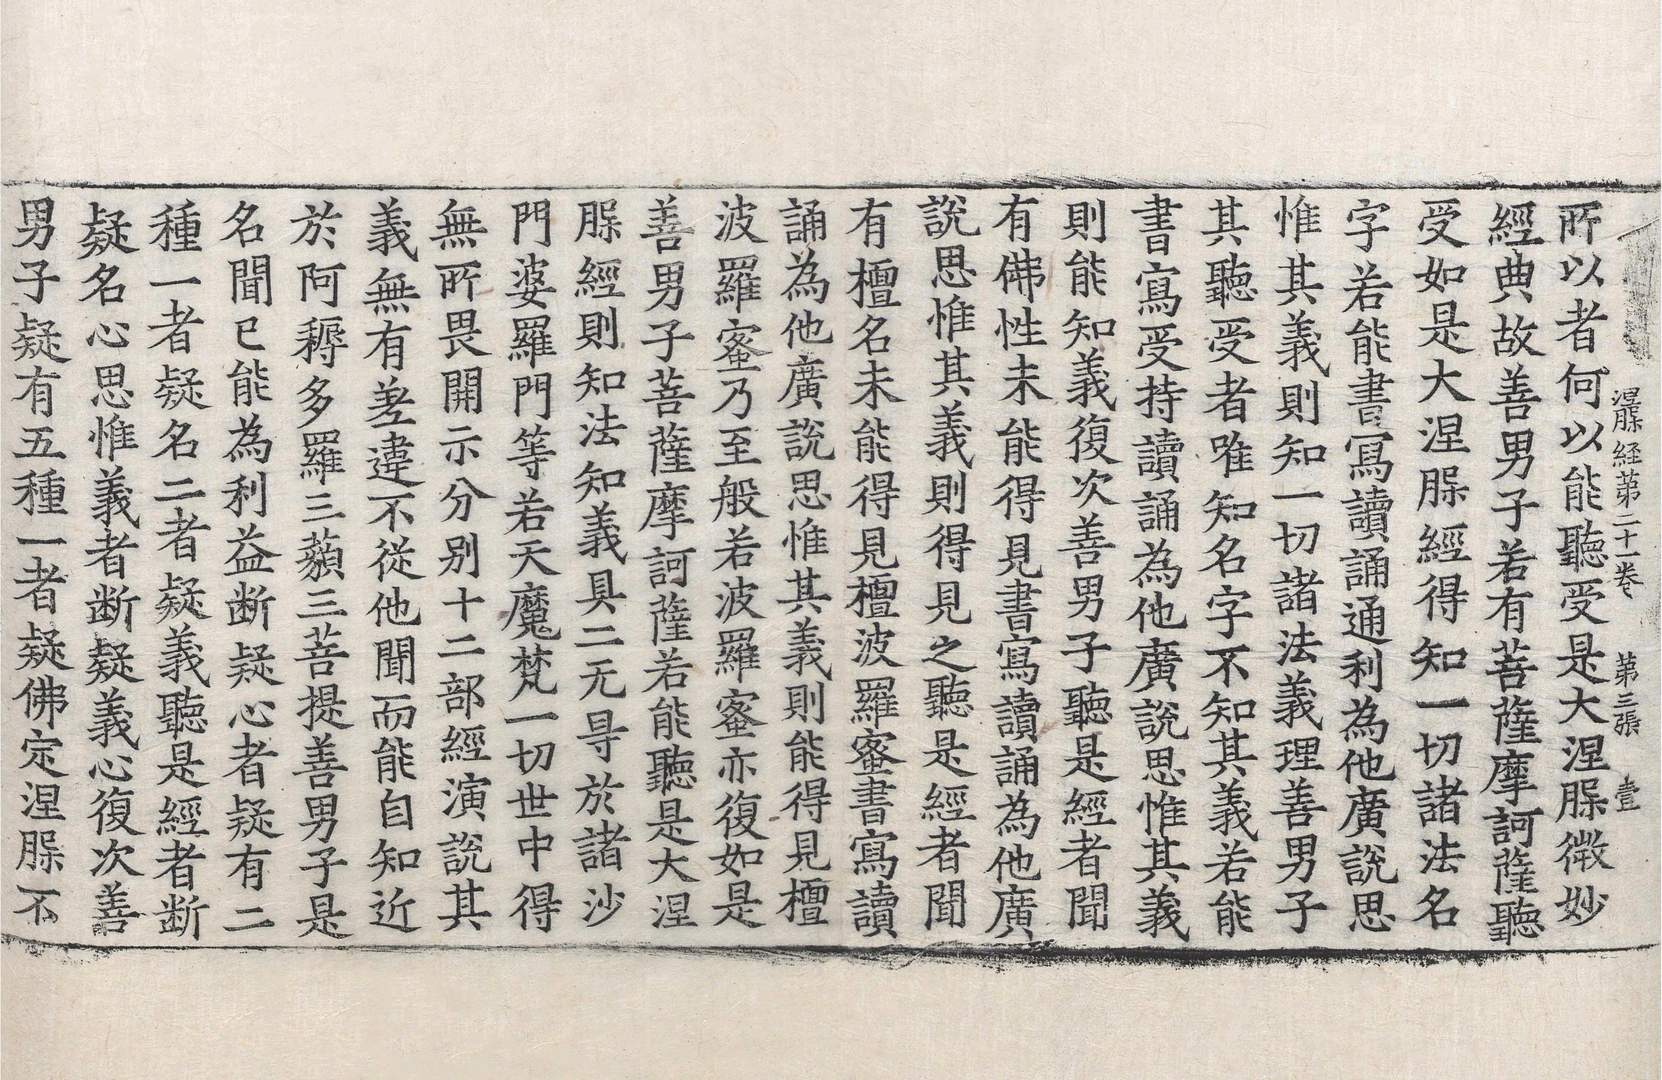 涅槃経第二十一卷 第三張 壹
所以者何以能聽受是大涅槃微妙
經典故善男子若有菩薩摩訶薩聽
受如是大涅槃經得知一切諸法名
字若能書寫讀誦通利為他廣說思
惟其義則知一切諸法義理善男子
其聽受者唯知名字不知其義若能
書寫受持讀誦為他廣說思惟其義
則能知義復次善男子聽是經者聞
有佛性未能得見書寫讀誦為他廣
說思惟其義則得見之聽是經者聞
有檀名未能得見檀波羅蜜書寫讀
誦為他廣說思惟其義則能得見檀
波羅蜜乃至般若波羅蜜亦復如是
善男子菩薩摩訶薩若能聽是大涅
槃經則知法知義具二无㝵於諸沙
門婆羅門等若天魔梵一切世中得
無所畏開示分別十二部經演說其
義無有差違不從他聞而能自知近
於阿耨多羅三藐三菩提善男子是
名聞已能為利益断疑心者疑有二
種一者疑名二者疑義聽是經者断
疑名心思惟義者断疑義心復次善
男子疑有五種一者疑佛定涅槃不